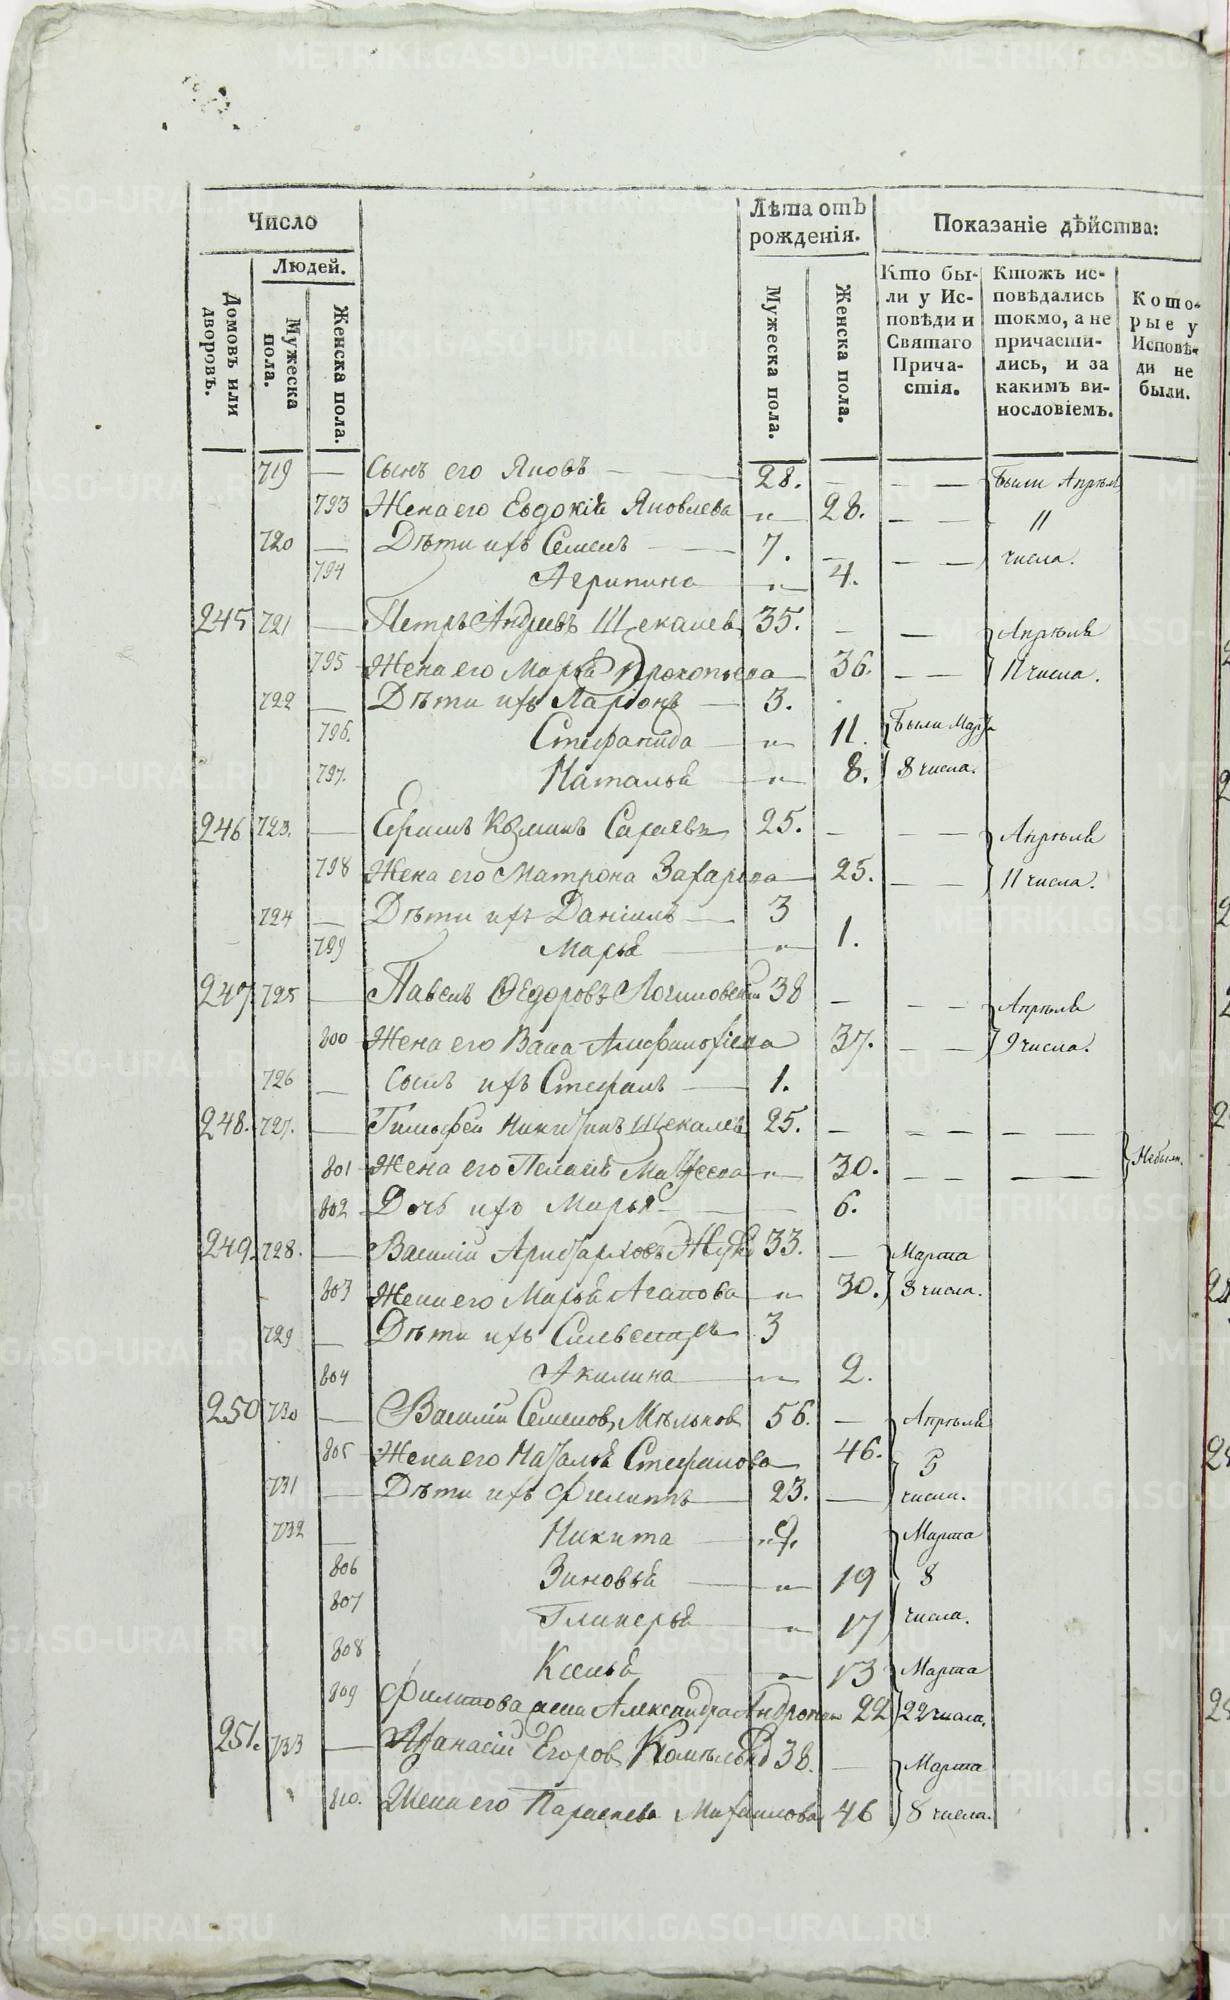 Число
Людей.
Домовъ или дворовъ.
Мужеска пола.
Женска пола.
Лѣта отъ рожденія.
Мужеска пола.
Женска пола.
Показаніе дѣйства:
Кто были у Исповѣди и Святаго Причастія.
Ктожъ исповѣдались токмо, а не причастились, и за какимъ винословіемъ.
Которые у Исповѣди не были.
719 — Сынъ его Яковъ — 28. — — — были Апрѣля
793 Жена его Евдокія Яковлева „ — 28. — — 11
720 — Дѣти ихъ Семенъ — 7. — — — числа.
794 Агрипина — „ — 4.
245 721 — Петръ Андреевъ Щекалевъ 35. — — Апрѣля
795 Жена его Марья Прокопьева — 36. — — 11 числа.
722 — Дѣти ихъ Ларіонъ — 3.
796. Стефанида — „ — 11. были Марта
797. Наталья — „ — 8. 8 числа.
246 723. — Козминъ 25. — — Апрѣля
798 Жена его Матрона Захарова — 25. — — 11 числа.
724 — Дѣти ихъ Даніилъ — 3
799 Марья — „ — 1.
247 725 — Павелъ Ѳедоровъ 38 — — — Апрѣля
800 Жена его 37. — — 9 числа.
726 — Сынъ ихъ Стефанъ — 1.
248. 727. — Тимофей Никитинъ Щекалевъ 25. — — — — —
801 Жена его Пелагія „ — 30. — — — Небыли.
802 Дочь ихъ Марья — — 6.
249. 728. — Василій Аристарховъ 33. — Марта
803 Жена его Марья Агапова — „ — 30. 8 числа.
729 — Дѣти ихъ Силвестръ 3
804 Акилина — „ — 2.
250 730 — Василій Семеновъ Мѣльковъ 56. — Апрѣля
805 Жена его Наталья Стефанова — 46. 5
731 — Дѣти ихъ Филиппъ — 23. — числа.
732 — Никита — 9. Марта
806 Зиновья — „ — 19 8
807 Гликерья — „ — 17 числа.
808 Ксенья — „ — 13 Марта
809 Филипова жена Александра 22 22 числа.
251. 733 — Афанасій Егоровъ 38. — Марта
810. Жена его Параскева Михаилова 46 8 числа.
METRIKI.GASO-URAL.RU